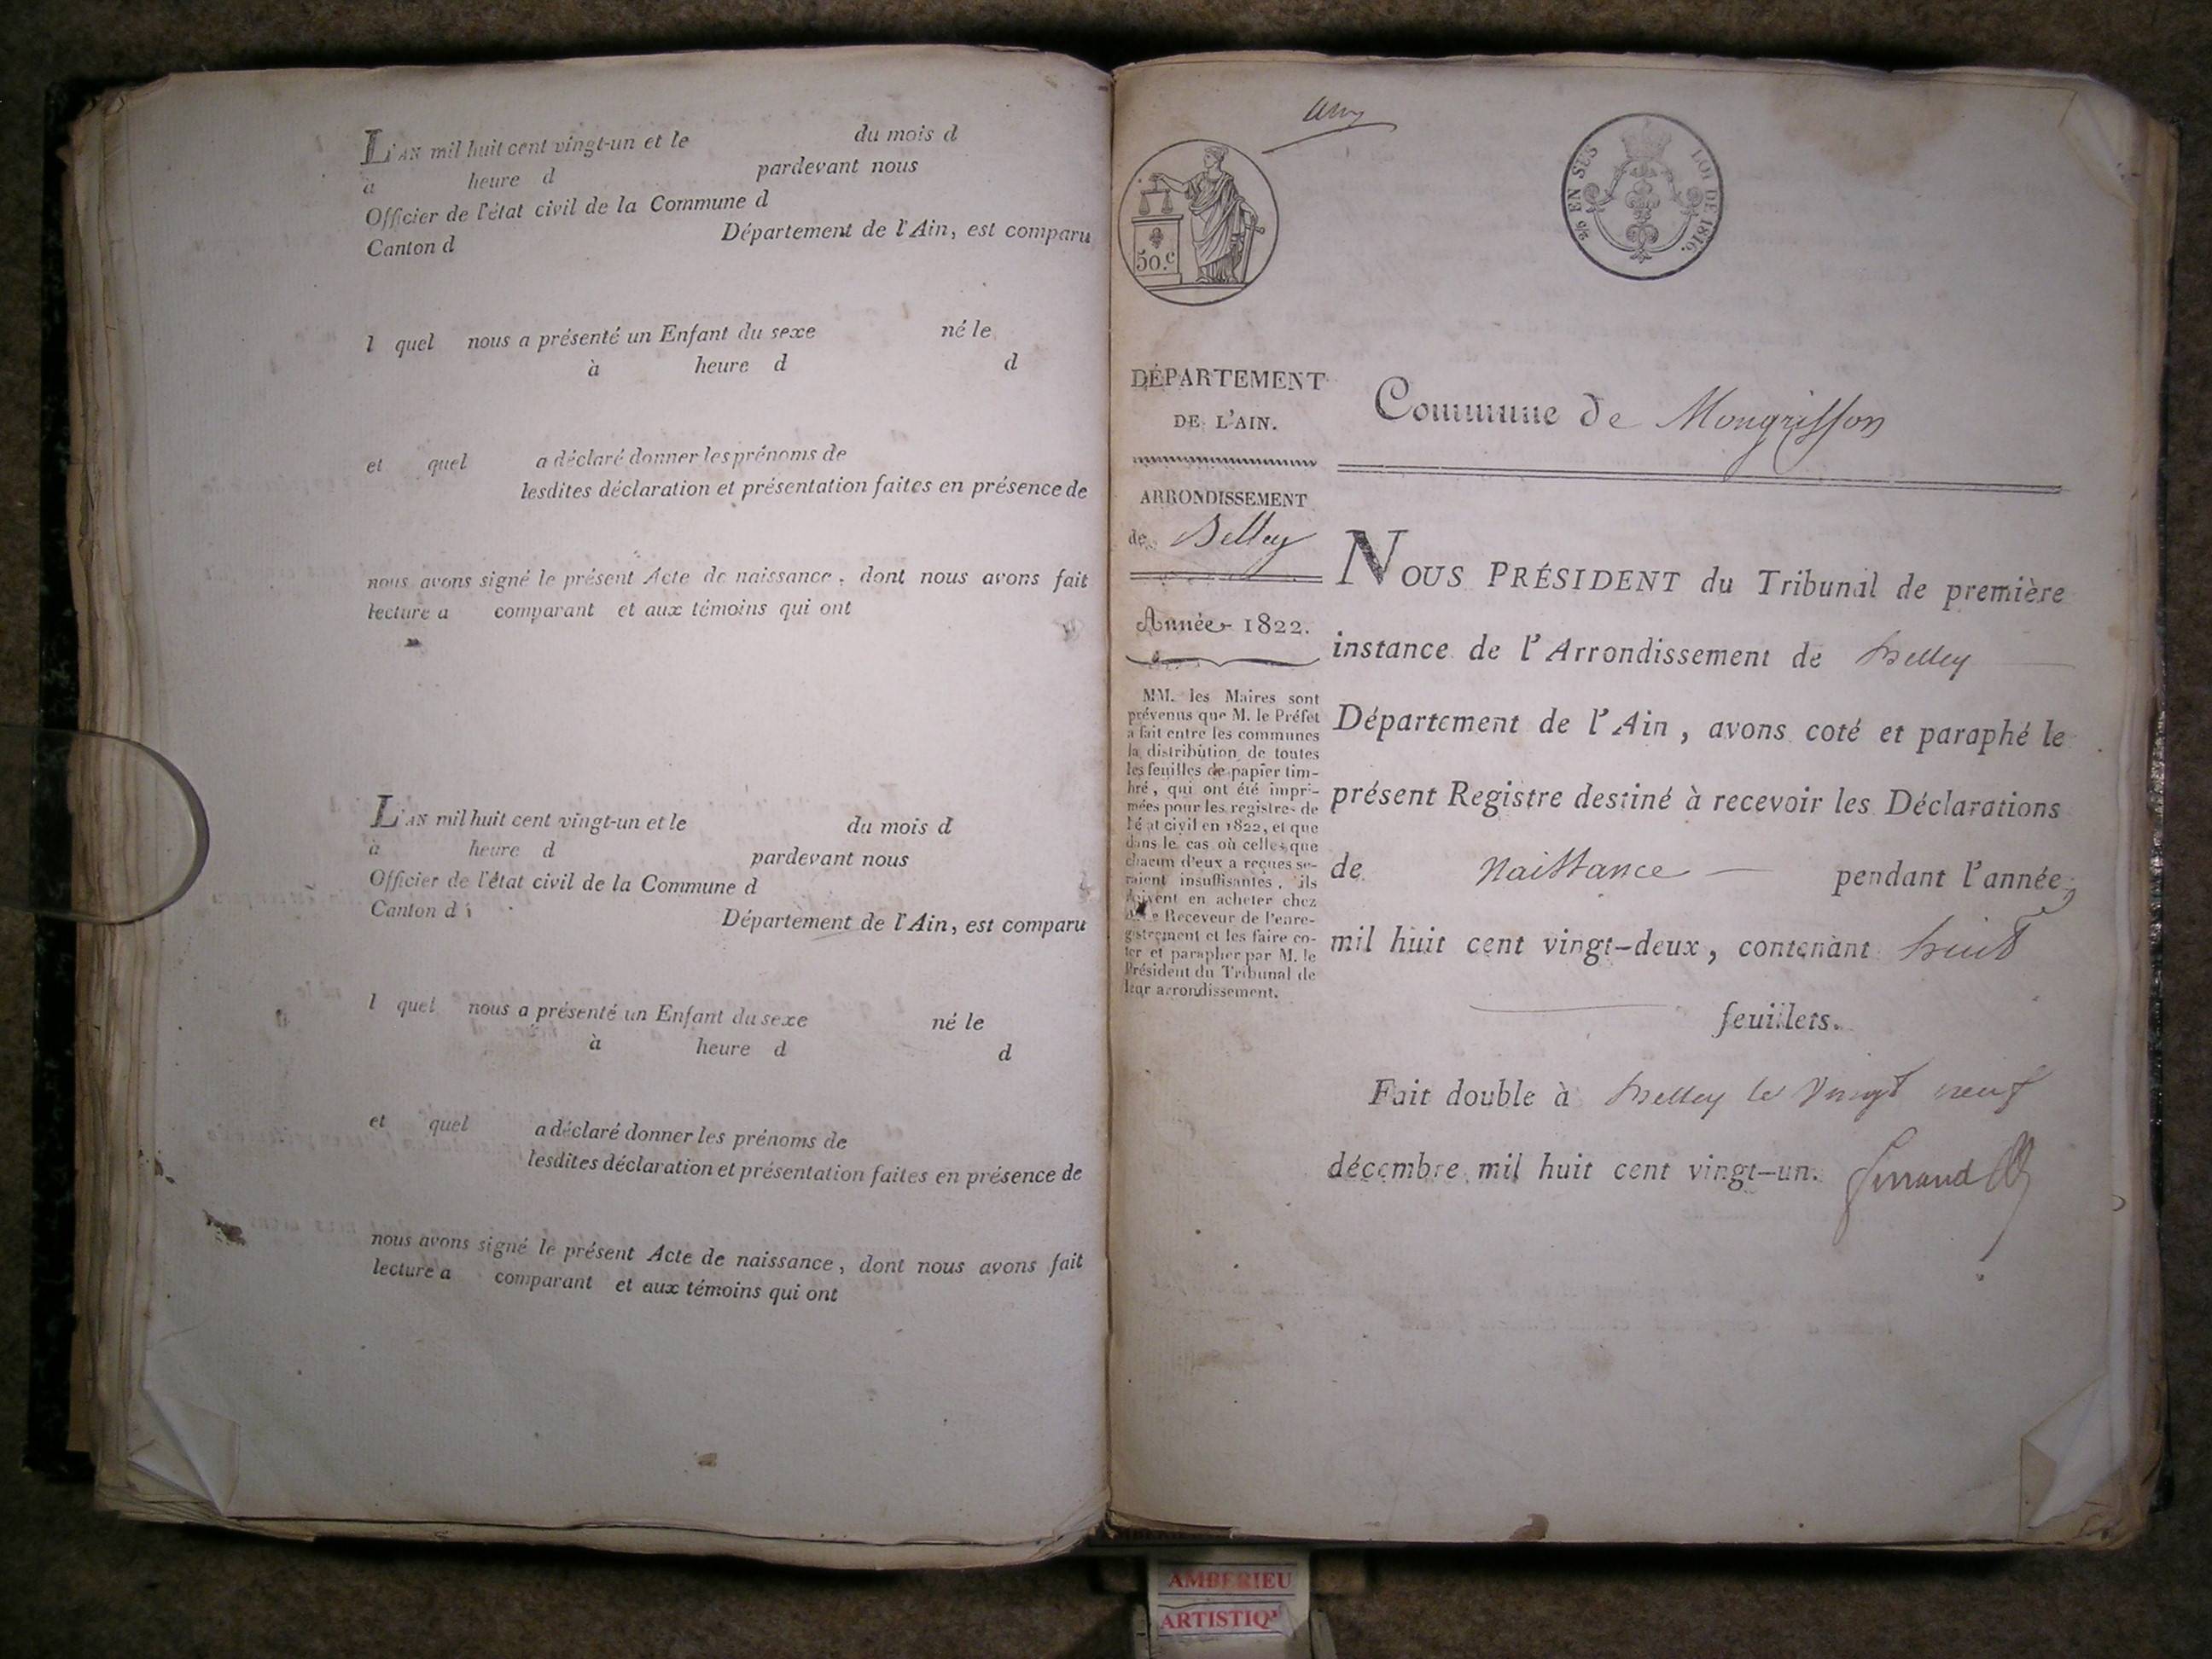 L'AN mil huit cent vingt-un et le du mois d
à heure d pardevant nous
Officier de l'état civil de la Commune d
Canton d Département de l'Ain, est comparu
l quel nous a présenté un Enfant du sexe né le
à heure d d
et quel a déclaré donner les prénoms de
lesdites déclaration et présentation faites en présence de
nous avons signé le présent Acte de naissance, dont nous avons fait
lecture a comparant et aux témoins qui ont
L'AN mil huit cent vingt-un et le du mois d
à heure d pardevant nous
Officier de l'état civil de la Commune d
Canton d Département de l'Ain, est comparu
l quel nous a présenté un Enfant du sexe né le
à heure d d
et quel a déclaré donner les prénoms de
lesdites déclaration et présentation faites en présence de
nous avons signé le présent Acte de naissance, dont nous avons fait
lecture a comparant et aux témoins qui ont
50.c
EN SUS
LOI DE 1816.
DÉPARTEMENT
DE L'AIN.
ARRONDISSEMENT
de Belley
Année 1822.
MM. les Maires sont
prévenus que M. le Préfet
a fait entre les communes
la distribution de toutes
les feuilles de papier tim-
bré, qui ont été impri-
mées pour les registres de
l'état civil en 1822, et que
dans le cas où celles que
chacun d'eux a reçues se-
raient insuffisantes, ils
doivent en acheter chez
M. le Receveur de l'enre-
gistrement et les faire co-
ter et parapher par M. le
Président du Tribunal de
leur arrondissement.
Commune de Mongrisson
NOUS PRÉSIDENT du Tribunal de première
instance de l'Arrondissement de Belley
Département de l'Ain, avons coté et paraphé le
présent Registre destiné à recevoir les Déclarations
de Naissance pendant l'année
mil huit cent vingt-deux, contenant huit
feuillets.
Fait double à Belley le vingt neuf
décembre mil huit cent vingt-un.
AMBERIEU
ARTISTIQ